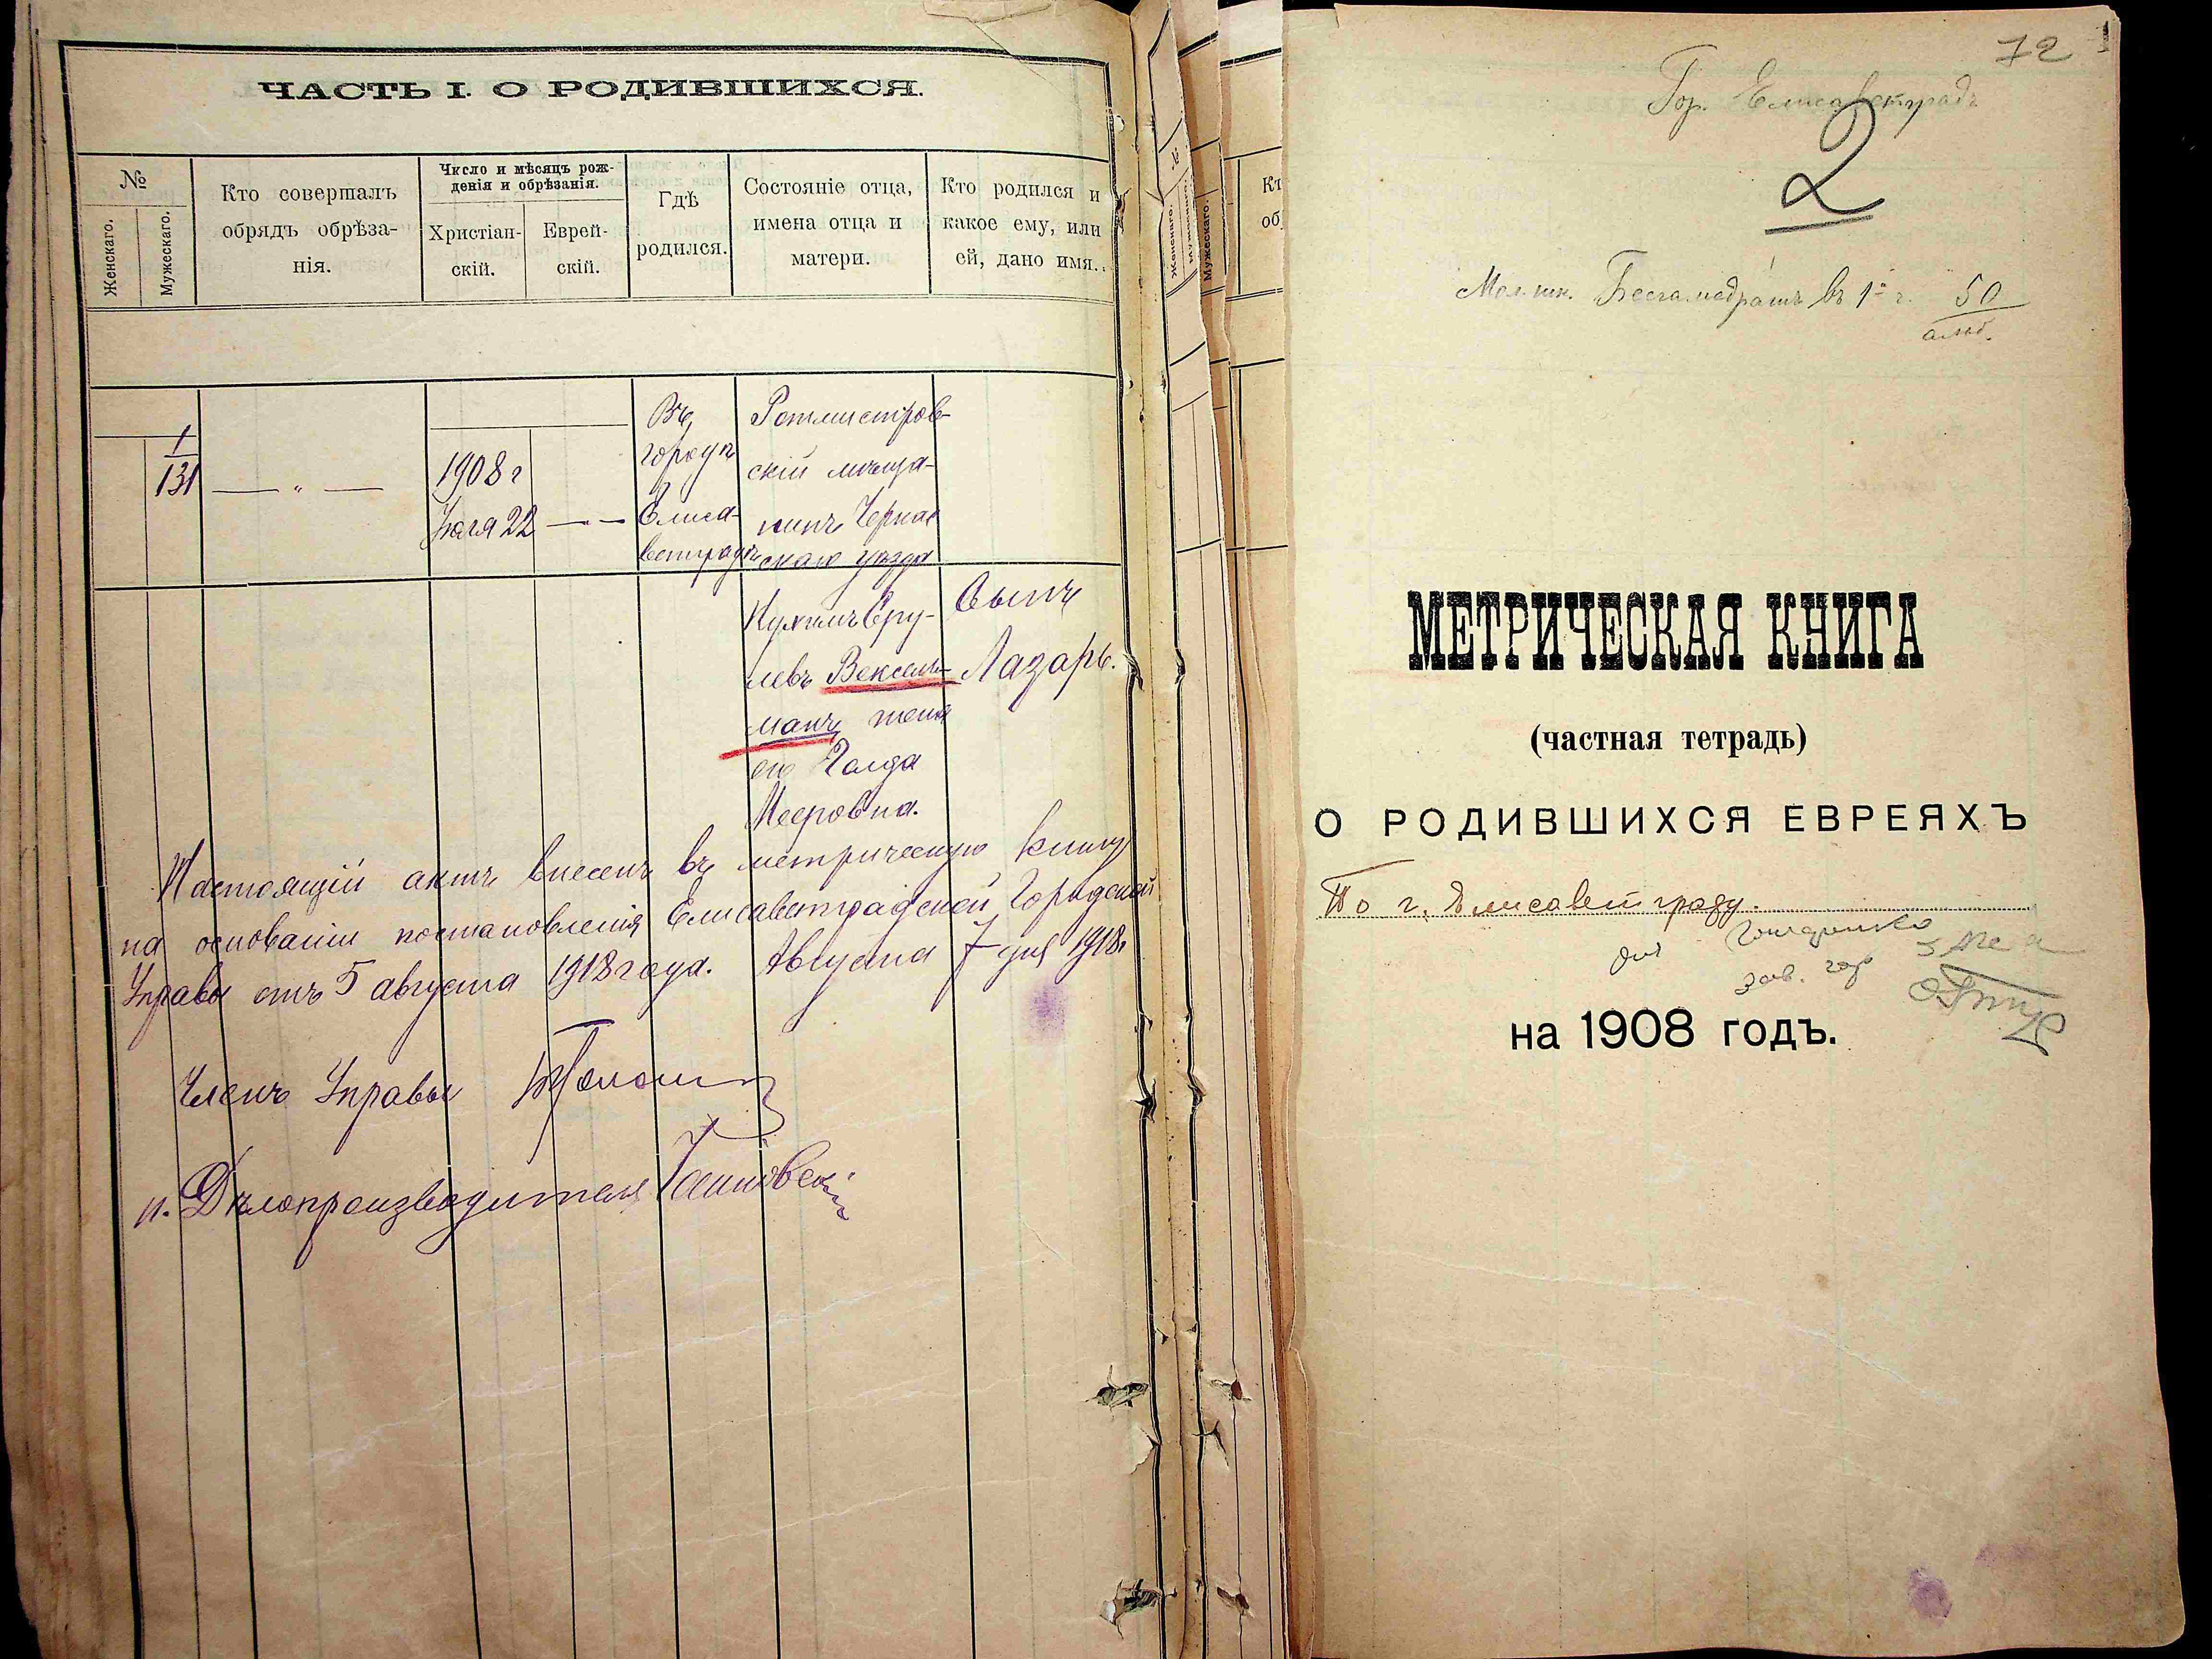 ЧАСТЬ I. О РОДИВШИХСЯ.
№
Женскаго.
Мужескаго.
Кто совершалъ
обрядъ обрѣза-
нія.
Число и мѣсяцъ рож-
денія и обрѣзанія.
Христіан-
скій.
Еврей-
скій.
Гдѣ
родился.
Состояніе отца,
имена отца и
матери.
Кто родился и
какое ему, или
ей, дано имя.
1
131
1908 г
Іюля 22
Въ
городѣ
Елиса-
ветградѣ
Ротмистров-
скій мѣща-
нинъ Черкас
скаго уѣзда
Сру-
левъ Вексель-
манъ жена
его Голда
Мееровна.
Сынъ
Лазарь.
Настоящій актъ внесенъ въ метрическую книгу
на основаніи постановленія Елисаветградской Городской
Управы отъ 5 августа 1918 года. Августа 7 дня 1918г
Членъ Управы
и. Дѣлопроизводителя
Женскаго.
Мужескаго.
Кт
об
72
Гор. Елисаветградъ
2
въ 1-й ч. 50
МЕТРИЧЕСКАЯ КНИГА
(частная тетрадь)
О РОДИВШИХСЯ ЕВРЕЯХЪ
По г. Елисаветграду.
зав. гор
на 1908 годъ.